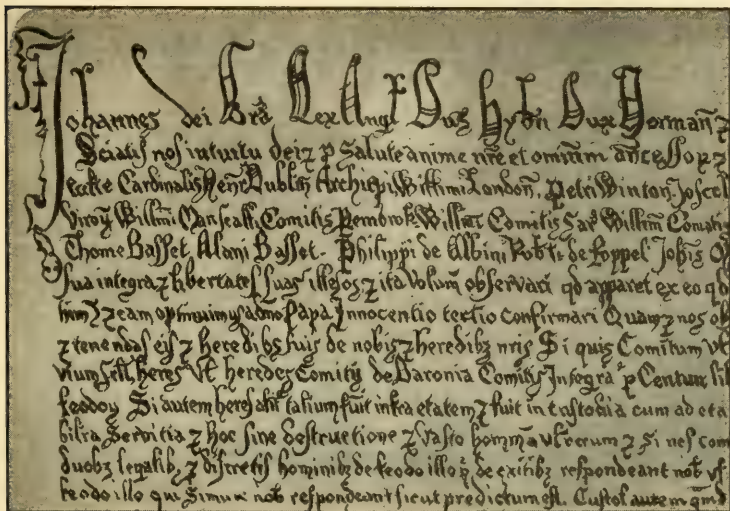 Johannes dei Grā Rex Angł Dn̄s Hybn̄ Dux Normañ ⁊
Sciatis nos intuitu dei ⁊ p salute anime nr̄e et omnium añcessorꝝ ⁊
eccłe Cardinalis Henr̄ Dublin̄ Archiepi Willm̄i London̄. Petri Winton̄ Joscel
viroꝝ Willm̄i Marescall Comitis Pembrok Willm̄i Comitis Sar̄ Willm̄i Comitis
Thome Basset Alani Basset. Philippi de Albini Rob̄ti de Roppel Joh̄is
sua integra ⁊ libertates suas illesas ⁊ ita volum̄ observari qd apparet ex eo qd
eam optinuimus a dño Papa Innocentio tertio confirmari Quam ⁊ nos
⁊ tenendas eis ⁊ heredibꝫ suis de nobis ⁊ heredibꝫ nr̄is Si quis Comitum vł
vium scił heres vł heredes Comitis de Baronia Comitis Integra p Centum lib
feodoꝝ Si autem heres alicꝰ talium fuit infra etatem ⁊ fuit in custodia cum ad eta
bilia servitia ⁊ hoc sine destructione ⁊ vasto hominū vł rerum ⁊ Si nos com
duobꝫ legalibꝫ ⁊ discretis hominibꝫ de feodo illo q̄ de exitibꝫ respondeant nob̄ vł
feodo illo qui Simił nob̄ respondeant sicut predictum est. Custos autem qmd